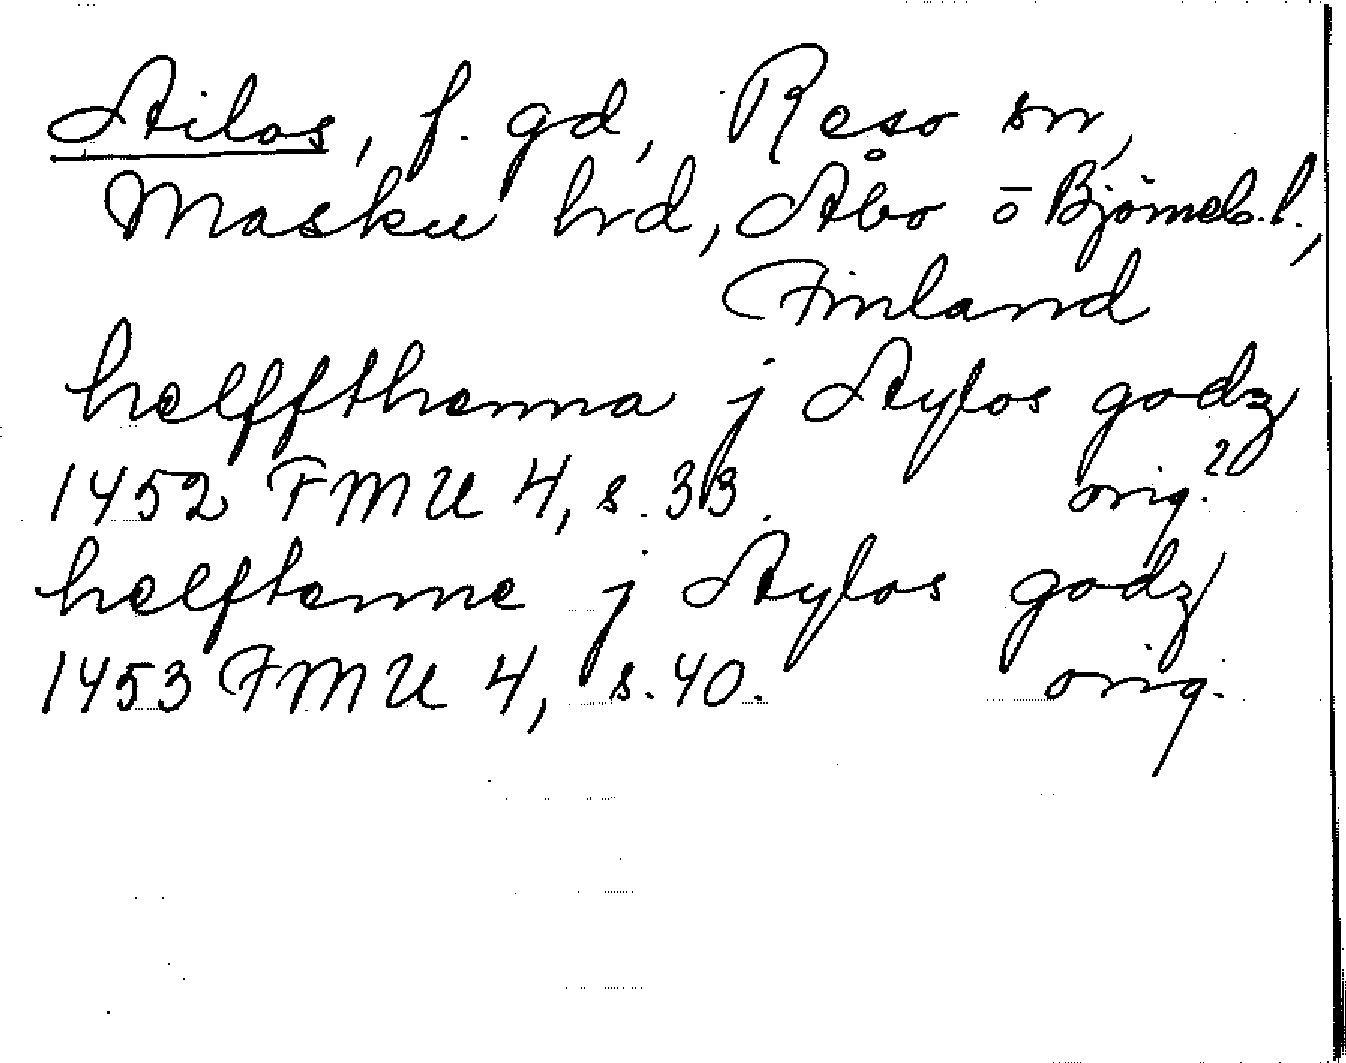 Ailos, f. gd, Reso sn,
Masku hrd, Åbo o Björneb. l.,
Finland
helffthenna j Aylos godz
1452 FMU 4, s. 33. orig.?
helftenne j Aylos godz
1453 FMU 4, s. 40. orig.